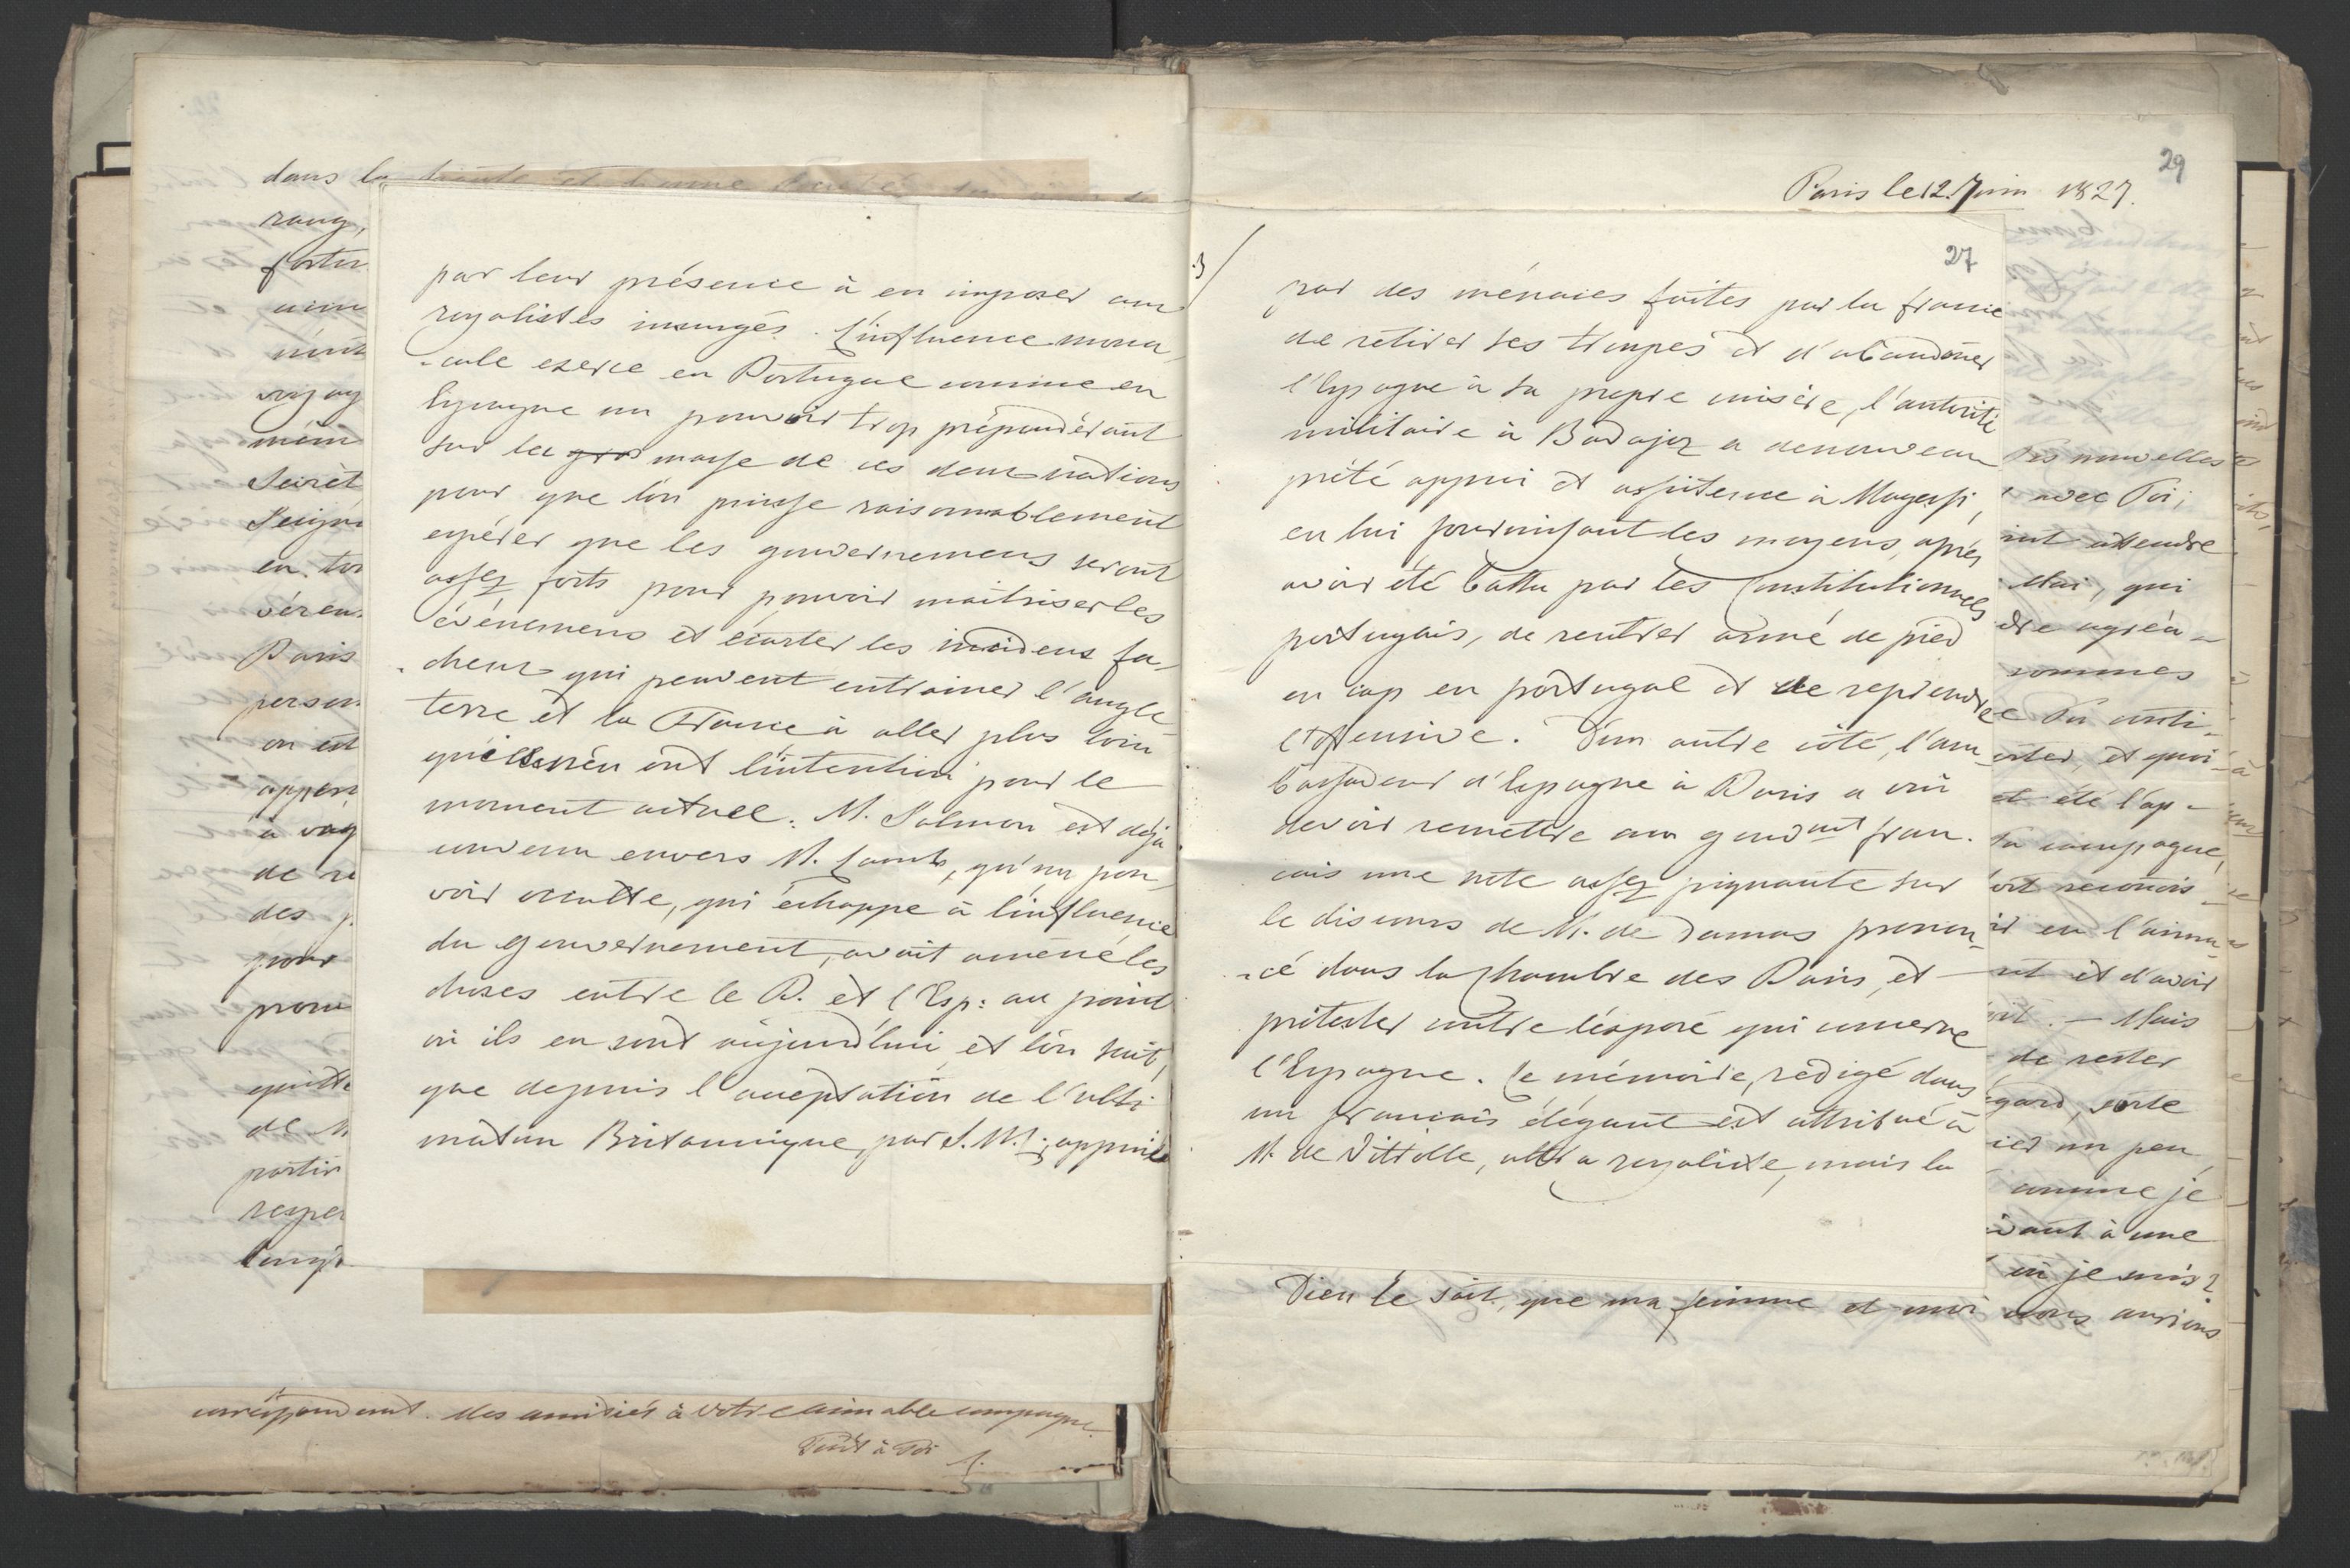 dans la haute et bonne
rang,
forter
aim
ment
voyag
mém
Secrét
Seign
en tou
véren
Paris
person
on est
appren
à voy
de re
des
pour
prom
quitte
de M
partir
respe
longt
par leur présence à en imposer aux
royalistes insurgés. L'influence mona-
-cale exerce en Portugal comme en
Espagne un pouvoir trop prépondérant
sur la gros masse de ces deux nations
pour que l'on puisse raisonnablement
espérer que les gouvernemens seront
assez forts pour pouvoir maitriser les
événemens et écarter les incidens fa-
-cheux qui peuvent entrainer l'angle
terre et la France à aller plus loin
qu'elles n'en ont l'intention pour le
moment actuel. M. Salmon est déjà
convenu envers M. Lamb, qu'un pou-
voir occulte, qui échappe à l'influence
du gouvernement, avait amené les
choses entre le P. et l'Esp: au point
où ils en sont aujourd'hui, et l'on sait,
que depuis l'acceptation de l'ulti
matum Britannique, par S. M. appuiée
correspondent. Mes amitiés à votre aimable compagne
Tout à Toi
29
Paris le 12. Juin 1827.
27
3/
par des ménaces faites par la france
de retirer ses troupes et d'abandoner
l'Espagne à sa propre misère, l'autorité
militaire à Badajoz a denouveau
prété appui et assistence à Magessi,
en lui fournissant les moyens, après
avoir été battu par les Constitutionnels
portugais, de rentrer armé de pied
en cap en portugal et de reprendre
l'offensive. D'un autre côté, l'am-
bassadeur d'Espagne à Paris a crû
devoir remettre au gouvmt fran-
cais une note assez piquante sur
le discours de M. de Damas pronon-
-cé dans la Chambre des Pairs, et
protester contre l'exposé qui concerne
l'Espagne. Ce mémoire, rédigé dans
un francais élégant est attribué à
M. de Vittolle, ultra royaliste, mais la
Des nouvelles
avec Toi,
int attendre
Moi, qui
dre agréa-
sommes
Tu anti-
orter, et quoi-
et été l'ap-
Ta compagne,
oit reconois-
ir en l'aimu
nt et d'avoir
oit. — Mais
de rester
égard, sorte
ier un peu
comme je
ivant à une
où je suis?
Dieu le sait, que ma femme et moi nous aurions